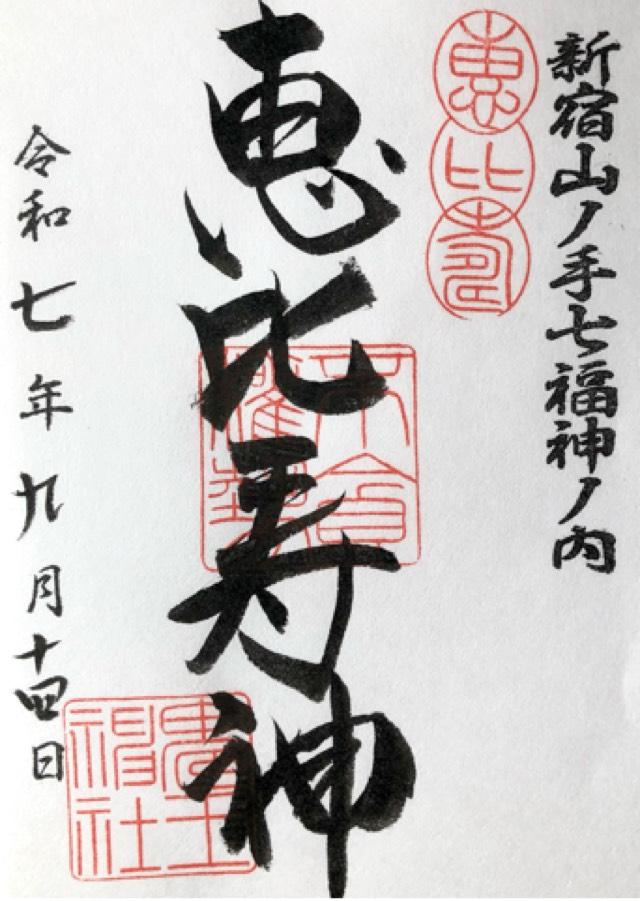 新宿山ノ手七福神ノ内
恵比寿
恵比寿神
令和七年九月十四日